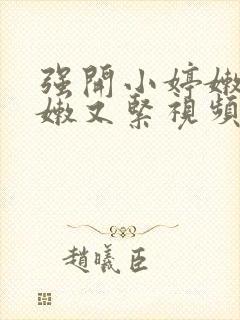 强開小婷嫩
嫩又緊視頻
趙曦臣